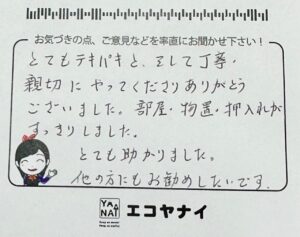 お気づきの点、ご意見などを率直にお聞かせ下さい！
とてもテキパキと、そして丁寧・
親切にやってくださりありがとう
ございました。部屋・物置・押入れが
すっきりしました。
とても助かりました。
他の方にもお勧めしたいです。
YA NAI
エコヤナイ